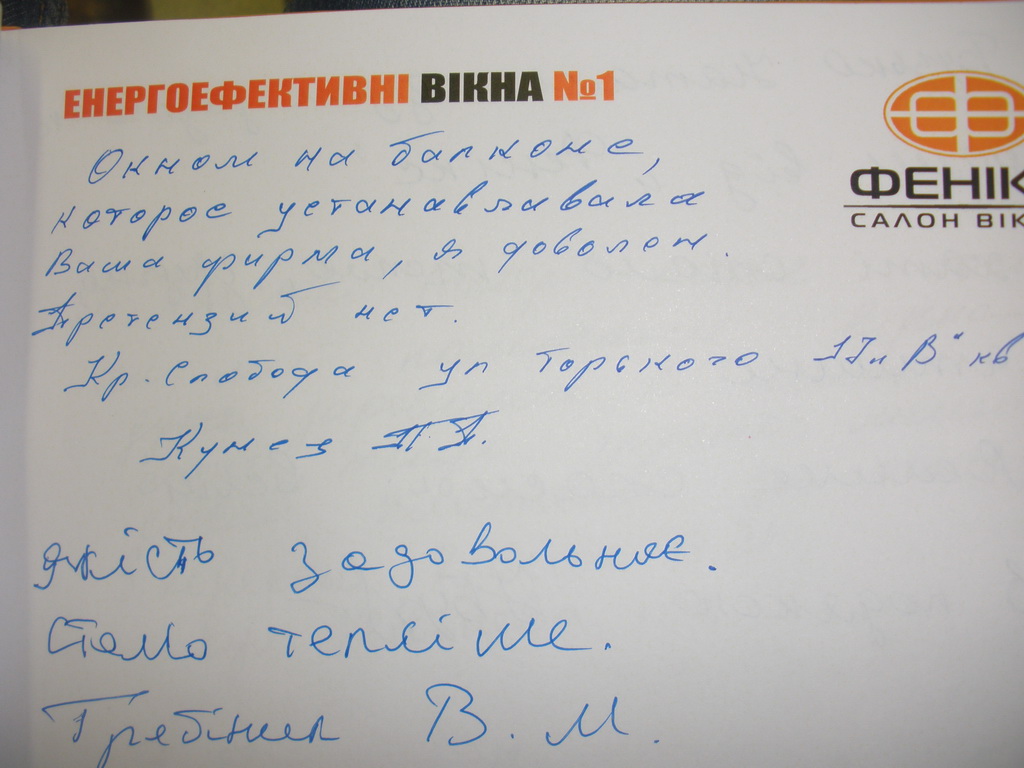 ЕНЕРГОЕФЕКТИВНІ ВІКНА №1
ФЕНІК
САЛОН ВІК
Окном на балконе,
которое устанавливала
Ваша фирма, я доволен.
Претензий нет.
Кр. Слобода ул Горького 17 "В" кв
П.П.
якість задовольняє.
Стало тепліше.
В. М.